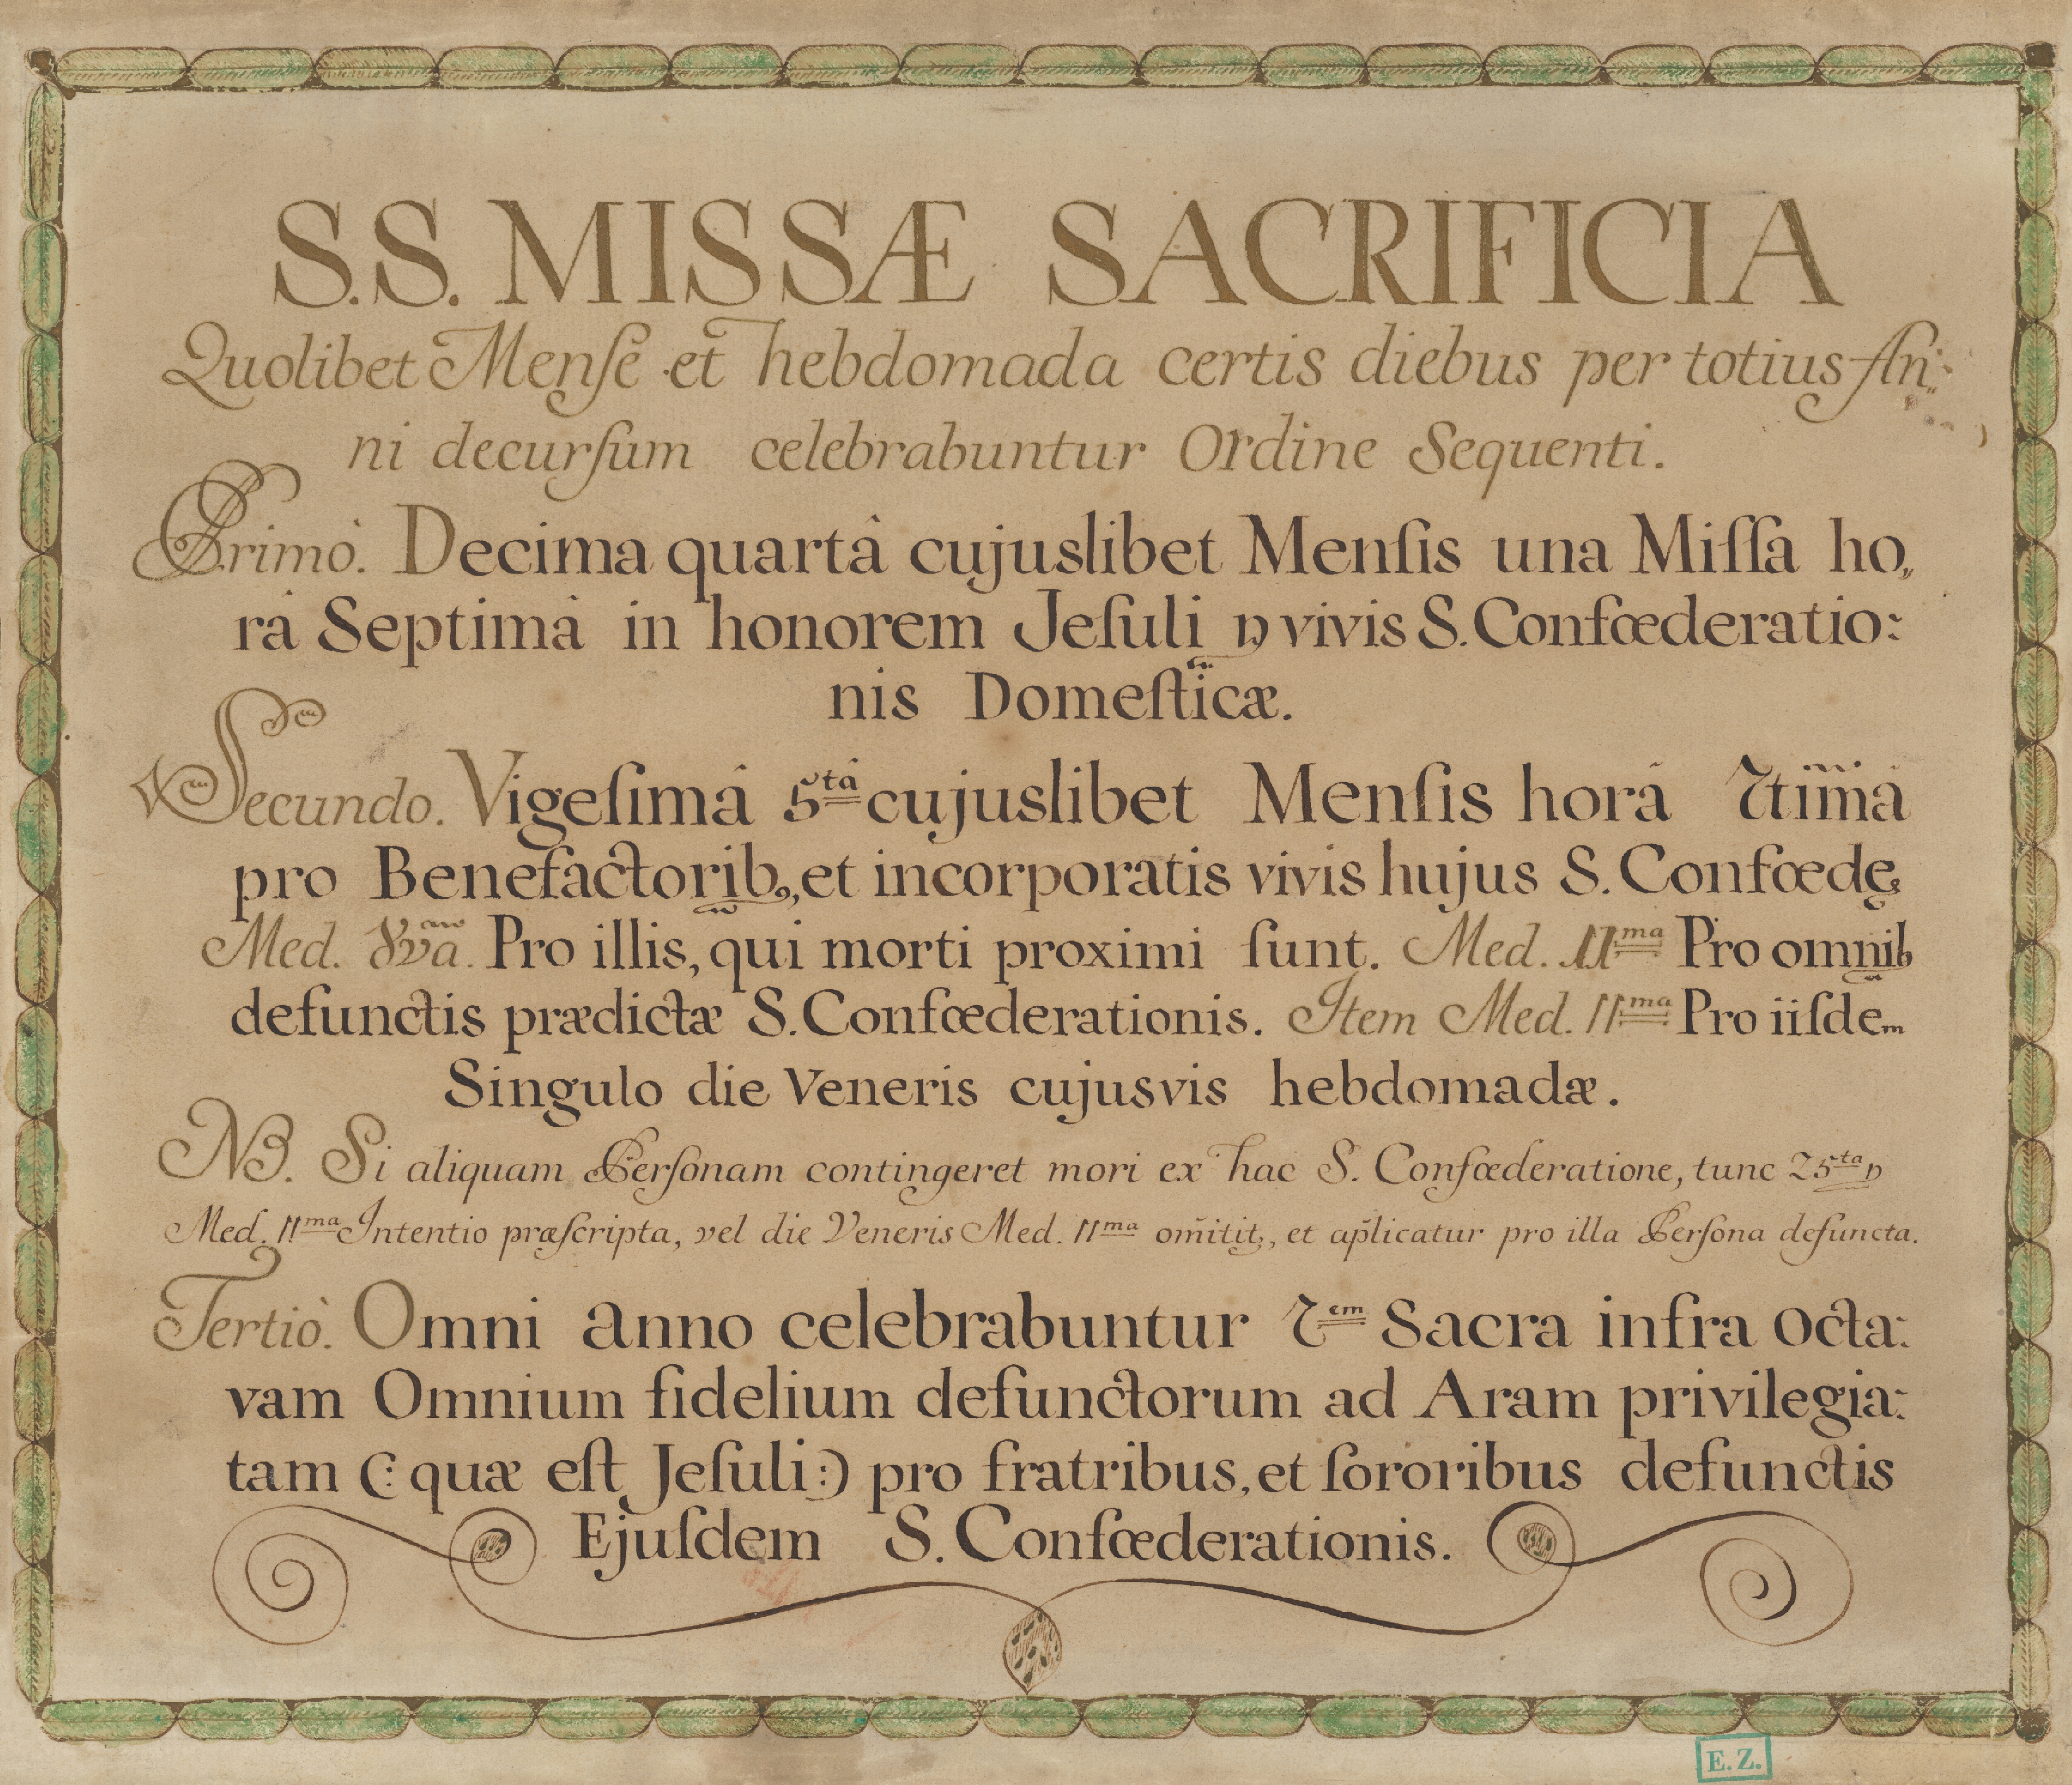 S.S. MISSÆ SACRIFICIA
Quolibet Menſe et hebdomada certis diebus per totius An„
ni decurſum celebrabuntur Ordine Sequenti.
Primò. Decima quartâ cujuslibet Menſis una Miſſa ho„
râ Septimâ in honorem Jeſuli p vivis S. Confœderatio:
nis Domeſticæ.
Secundo. Vigeſimâ 5tâ cujuslibet Menſis horâ 7timâ
pro Benefactorib9, et incorporatis vivis hujus S. Confœde
Med. 8va. Pro illis, qui morti proximi ſunt. Med. 11ma Pro omnib
defunctis prædictæ S. Confœderationis. Item Med. 11ma Pro iiſdem
Singulo die Veneris cujusvis hebdomadæ.
NB. Si aliquam Perſonam contingeret mori ex hac S. Confœderatione, tunc 25ta p
Med. 11ma Intentio præſcripta, vel die Veneris Med. 11ma om̄itit:, et ap̄licatur pro illa Perſona defuncta.
Tertiò. Omni anno celebrabuntur 7em Sacra infra Octa:
vam Omnium fidelium defunctorum ad Aram privilegia:
tam (: quæ eſt Jeſuli :) pro fratribus, et ſororibus defunctis
Ejuſdem S. Confœderationis.
E.Z.